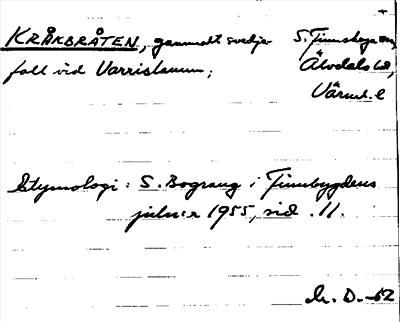 KRÅKBRÅTEN, gammalt svedje-
fall vid Varristanum;
S. Finnskoga sn,
Älvdals hd,
Värml. l
Etymologi: S. Bograng i Finnbygdens
julnr 1955, sid. 11.
D. -62